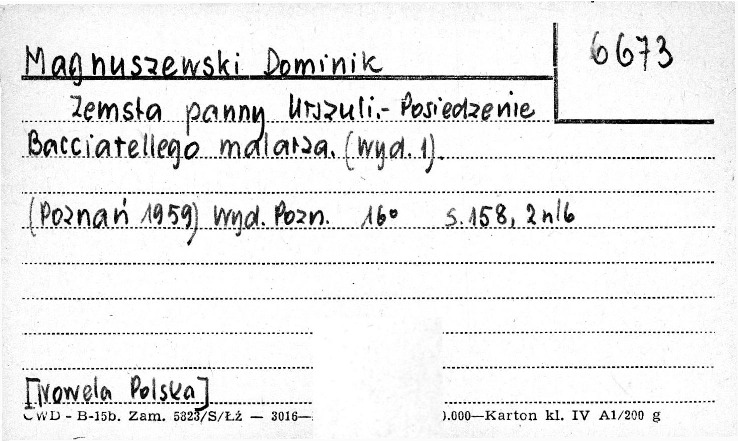 Magnuszewski Dominik
6673
Zemsta panny Urszuli.- Posiedzenie
Bacciatellego malarza. (Wyd. 1).
(Poznań 1959) Wyd. Pozn. 16° s. 158, 2 nlb
[Nowela Polska]
CWD - B-15b. Zam. 5823/S/Łź — 3016— 0.000—Karton kl. IV A1/200 g